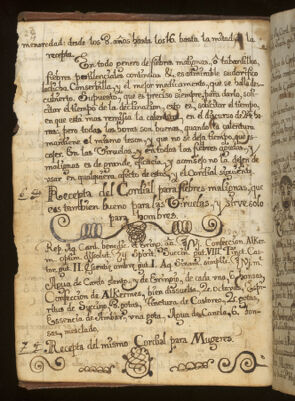 menor edad: desde los 8. años hasta los 16. hasta la mitad de la
receta.
En todo genero de fiebres malignas, ò tabardillos,
fiebres pestilenciales continuas &c. es admirable sudorifico
la dicha y el mejor medicamento, que se halla des-
cubierto. Supuesto, que es preciso siempre, para darlo, soli-
citar el tiempo de la declinacion, esto es, solicitar el tiempo,
en que está mas remissa la calentura, en el discurso de 24 ho-
ras, pero todas las horas son buenas, quando la calentura
mantiene el mismo teson, y que no se dexa tiempo, que es-
coger. En las Viruelas, y en todas las fiebres agudas, y
malignas es de grande eficacia, y aconsejo no la dejen de
usar en qualquiera, afecto de estos, y el Cordial siguiente.
Recepta del Cordial para fiebres malignas, que
es tambien bueno para las Viruelas, y sirve solo
para hombres.
Rep. Aq. Card. benedic. et Confection. Alker-
m. optim. dissolut. Spirit. Succin. gut. VIII. Tinct. Cas-
tor. gut. II.
Agua de Cardo santo, y de de cada uno, 6 onzas,
Confeccion de Alkermes, bien dissuelta, 2 octavas, Espi-
ritus de Succino, 8 gotas, Tinctura de Castoreo, 2 gotas,
Essencia de Ambar, una gota, Agua de Canela, 6 on-
zas, mezclado.
Recepta del mismo Cordial para Mugeres.